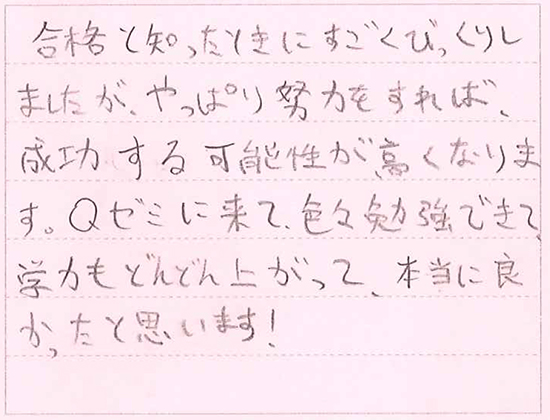 合格と知ったときにすごくびっくりし
ましたが、やっぱり努力をすれば、
成功する可能性が高くなりま
す。Qゼミに来て、色々勉強できて、
学力もどんどん上がって、本当に良
かったと思います!